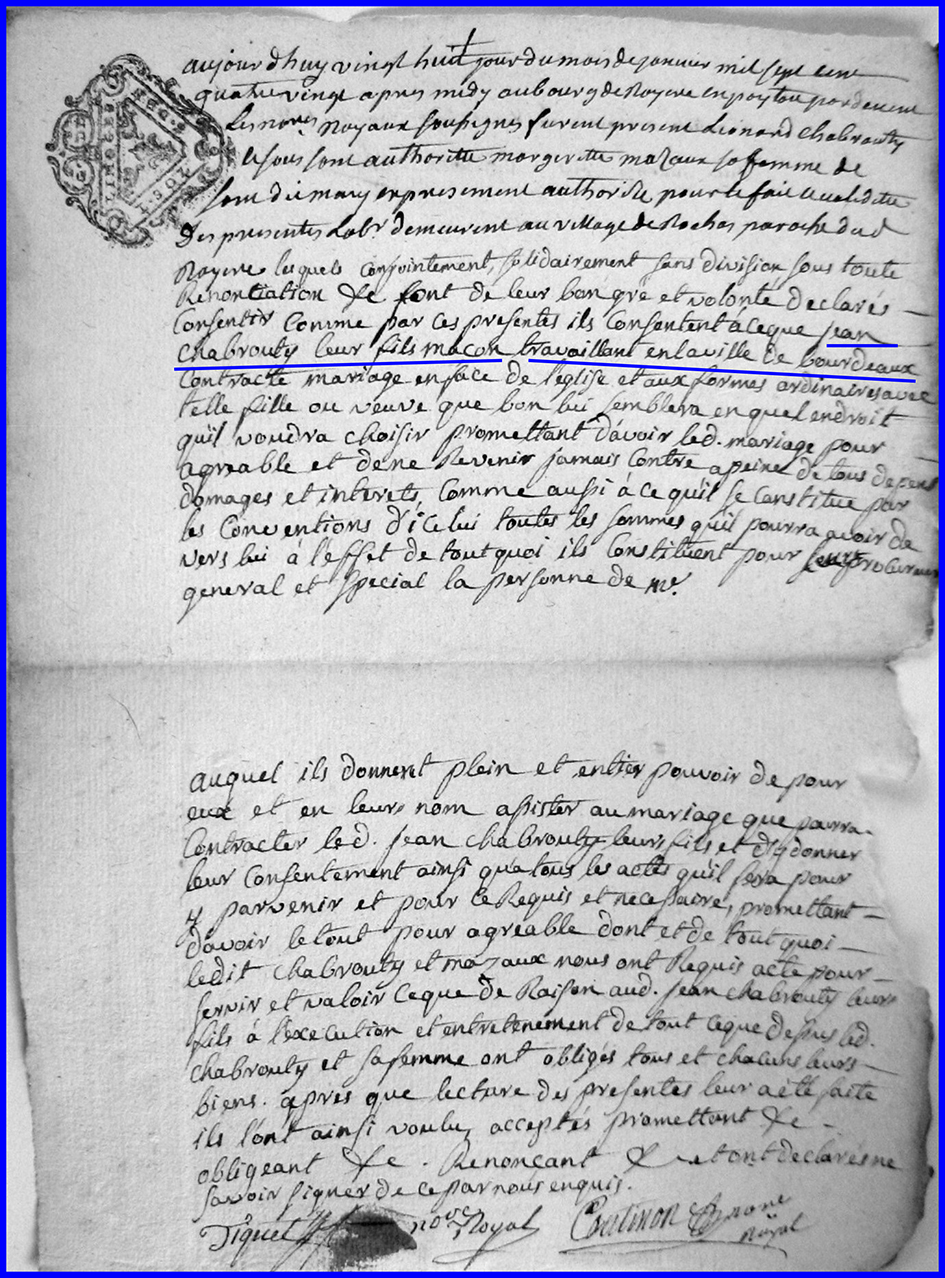 aujourdhuy vingt huit jour du mois de janvier mil sept cent
quatre vingt apres midy au bourg de Royere en poytou par devent
Les no.res Royaux soussignes furent present Léonard Chabrouty
et sous son authoritté margeritte mazaux sa femme de
son dit mary expressement authorisée pour le fait et validitte
Des presentes Lab.r demeurent au village de Rochas paroche dud
Royere lesquels conjointement, solidairement sans division sous toute
Renontiation &c font de leur bon gré et volonté declarés
Consentir Comme par ces presentes ils Consentent àceque jean
chabrouty leur fils macon travaillant en la ville de bourdeaux
Contracte mariage en face de l'église et aux formes ordinaires avec
telle fille ou veuve que bon lui semblera en quel endroit
quil voudra choisir promettant d'avoir led. mariage pour
agreable et de ne Revenir jamais contre apeine de tous depens
domages et interets, Comme aussi à ce quil se Constitue par
les Conventions d'icelui toutes les sommes quil pourra avoir de
vers lui à l'effet de tout quoi ils Constituent pour leur procureur
general et special la personne de m.e
auquel ils donnent plein et entier pouvoir de pour
eux et en leurs nom assister au mariage que pourra
Contracter led. jean chabrouty leurs fils et d'y donner
leur Consentement ainsi qua tous les actes quil sera pour
y parvenir et pour ce Requis et necessaire, promettant
d'avoir le tout pour agreable dont et de tout quoi
ledit chabrouty et mazaux nous ont Requis acte pour
servir et valoir ce que de Raison aud. jean chabrouty leurs
fils à l'execution et entretenement de tout ceque dessus led.
chabrouty et sa femme ont obligés tous et chacuns leurs
biens. apres que lecture des presentes leur a eté faite
ils l'ont ainsi voulu, acceptés promettant &c
obligeant &c. Renoncant &c et ont declarés ne
savoir signer de ce par nous enquis.
Tiquet no.re Royal Coutinon no.re
Royal